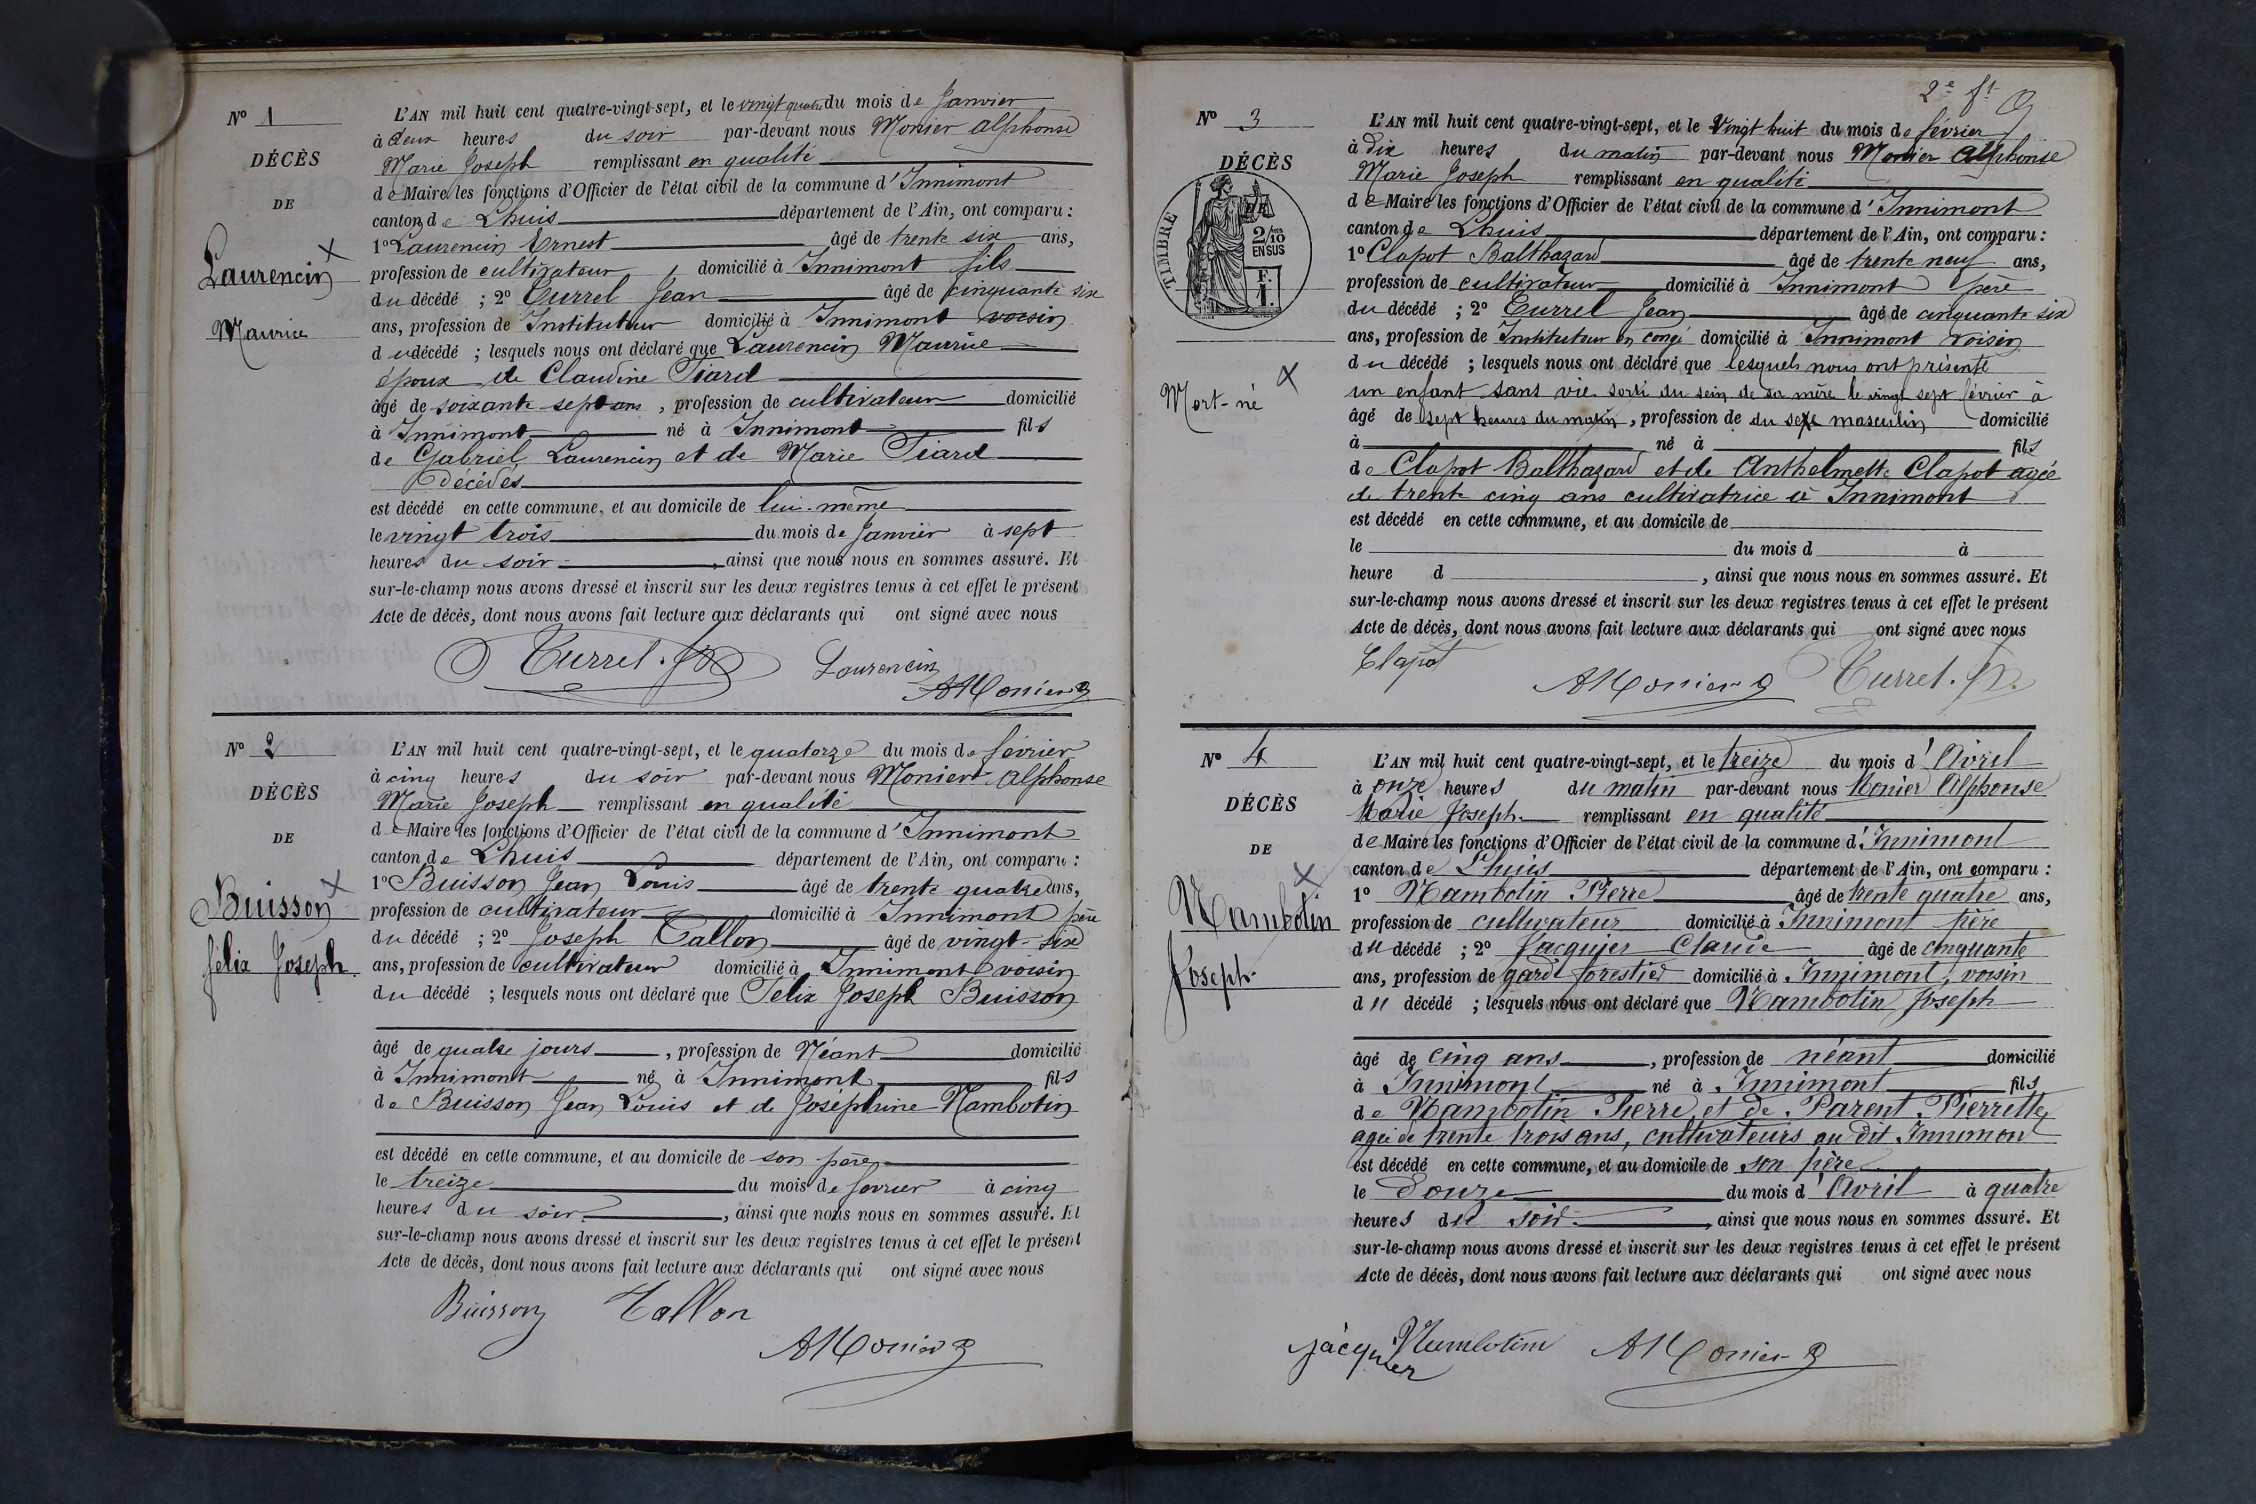 N° 1
DÉCÈS
DE
Laurencin
Maurice
L'AN mil huit cent quatre-vingt-sept, et le vingt quatre du mois de Janvier
à deux heures du soir par-devant nous Monier Alphonse
Marie Joseph remplissant en qualité
de Maire les fonctions d'Officier de l'état civil de la commune d'Innimont
canton de Lhuis département de l'Ain, ont comparu :
1° Laurencin Ernest âgé de trente six ans,
profession de cultivateur, domicilié à Innimont fils
du décédé ; 2° Turrel Jean âgé de cinquante six
ans, profession de Instituteur domicilié à Innimont voisin
du décédé ; lesquels nous ont déclaré que Laurencin Maurice
époux de Claudine Tiard
âgé de soixante sept ans, profession de cultivateur domicilié
à Innimont né à Innimont fils
de Gabriel Laurencin et de Marie Tiard
décédés
est décédé en cette commune, et au domicile de lui-même
le vingt trois du mois de Janvier à sept
heures du soir, ainsi que nous nous en sommes assuré. Et
sur-le-champ nous avons dressé et inscrit sur les deux registres tenus à cet effet le présent
Acte de décès, dont nous avons fait lecture aux déclarants qui ont signé avec nous
Turrel. Laurencin
AMonier
N° 2
DÉCÈS
DE
Buisson
félix Joseph
L'AN mil huit cent quatre-vingt-sept, et le quatorze du mois de février
à cinq heures du soir par-devant nous Monier Alphonse
Marie Joseph remplissant en qualité
de Maire les fonctions d'Officier de l'état civil de la commune d'Innimont
canton de Lhuis département de l'Ain, ont comparu :
1° Buisson Jean Louis âgé de trente quatre ans,
profession de cultivateur domicilié à Innimont père
du décédé ; 2° Joseph Tallon âgé de vingt-six
ans, profession de cultivateur domicilié à Innimont voisin
du décédé ; lesquels nous ont déclaré que Felix Joseph Buisson
âgé de quatre jours, profession de Néant domicilié
à Innimont né à Innimont fils
de Buisson Jean Louis et de Joséphine Mambotin
est décédé en cette commune, et au domicile de son père
le treize du mois de fevrier à cinq
heures du soir, ainsi que nous nous en sommes assuré. Et
sur-le-champ nous avons dressé et inscrit sur les deux registres tenus à cet effet le présent
Acte de décès, dont nous avons fait lecture aux déclarants qui ont signé avec nous
Buisson Tallon
AMonier
2e ft
N° 3
DÉCÈS
TIMBRE
2/10
EN SUS
F.
1.
Mort-né
L'AN mil huit cent quatre-vingt-sept, et le Vingt huit du mois de février
à dix heures du matin par-devant nous Monier Alphonse
Marie Joseph remplissant en qualité
de Maire les fonctions d'Officier de l'état civil de la commune d'Innimont
canton de Lhuis département de l'Ain, ont comparu :
1° Clapot Balthazard âgé de trente neuf ans,
profession de cultivateur domicilié à Innimont père
du décédé ; 2° Turrel Jean âgé de cinquante six
ans, profession de Instituteur en congé domicilié à Innimont voisin
du décédé ; lesquels nous ont déclaré que lesquels nous ont présenté
un enfant sans vie sorti du sein de sa mère le vingt sept février à
âgé de sept heures du matin, profession de du sexe masculin domicilié
à né à fils
de Clapot Balthazard et de Anthelmette Clapot agée
de trente cinq ans cultivatrice à Innimont
est décédé en cette commune, et au domicile de
le du mois d à
heure d , ainsi que nous nous en sommes assuré. Et
sur-le-champ nous avons dressé et inscrit sur les deux registres tenus à cet effet le présent
Acte de décès, dont nous avons fait lecture aux déclarants qui ont signé avec nous
Clapot
AMonier Turrel.
N° 4
DÉCÈS
DE
Mambotin
Joseph
L'AN mil huit cent quatre-vingt-sept, et le treize du mois d'Avril
à onze heures du matin par-devant nous Monier Alphonse
Marie Joseph remplissant en qualité
de Maire les fonctions d'Officier de l'état civil de la commune d'Innimont
canton de Lhuis département de l'Ain, ont comparu :
1° Mambotin Pierre âgé de trente quatre ans,
profession de cultivateur domicilié à Innimont père
du décédé ; 2° Jacquier âgé de cinquante
ans, profession de garde forestier domicilié à Innimont, voisin
du décédé ; lesquels nous ont déclaré que Mambotin Joseph
âgé de cinq ans, profession de néant domicilié
à Innimont né à Innimont fils
de Mambotin Pierre et de Parent Pierrette
agée de trente trois ans, cultivateurs au dit Innimont
est décédé en cette commune, et au domicile de son père
le Douze du mois d'Avril à quatre
heures du soir, ainsi que nous nous en sommes assuré. Et
sur-le-champ nous avons dressé et inscrit sur les deux registres tenus à cet effet le présent
Acte de décès, dont nous avons fait lecture aux déclarants qui ont signé avec nous
jacquier Mambotin AMonier